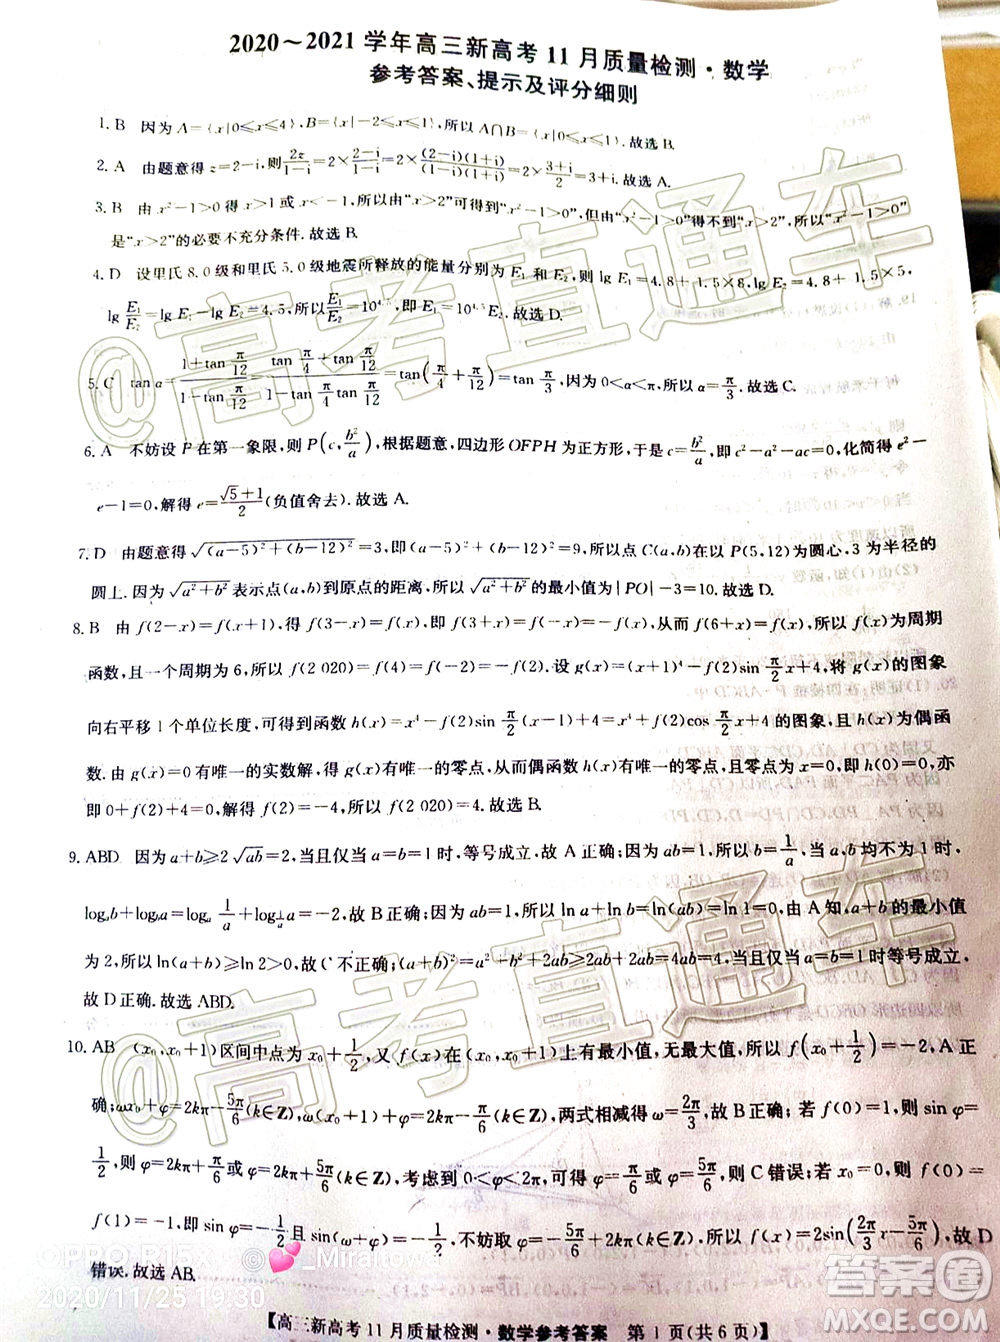 2020～2021 学年高三新高考 11 月质量检测·数学
参考答案、提示及评分细则
1. B 因为 A={x|0≤x≤4}, B={x|-2≤x≤1}, 所以 A∩B={x|0≤x≤1}. 故选 B.
2. A 由题意得 z=2-i, 则 2z/(1-i)=2×(2-i)/(1-i)=2×(2-i)(1+i)/(1-i)(1+i)=2×(3+i)/2=3+i. 故选 A.
3. B 由 x²-1>0 得 x>1 或 x<-1. 由“x>2”可得到“x²-1>0”, 但由“x²-1>0”得不到“x>2”, 所以“x²-1>0”
是“x>2”的必要不充分条件. 故选 B.
4. D 设里氏 8.0 级和里氏 5.0 级地震所释放的能量分别为 E₁ 和 E₂, 则 lg E₁=4.8+1.5×8, lg E₂=4.8+1.5×5,
lg E₁/E₂=lg E₁-lg E₂=4.5, 所以 E₁/E₂=10^4.5, 即 E₁=10^4.5 E₂. 故选 D.
5. C tan α=(1+tan π/12)/(1-tan π/12)=(tan π/4+tan π/12)/(1-tan π/4 tan π/12)=tan(π/4+π/12)=tan π/3, 因为 0<α<π, 所以 α=π/3. 故选 C.
6. A 不妨设 P 在第一象限, 则 P(c, b²/a), 根据题意, 四边形 OFPH 为正方形, 于是 c=b²/a, 即 c²-a²-ac=0, 化简得 e²-
e-1=0, 解得 e=(√5+1)/2(负值舍去). 故选 A.
7. D 由题意得 √((a-5)²+(b-12)²)=3, 即(a-5)²+(b-12)²=9, 所以点 C(a,b)在以 P(5,12)为圆心, 3 为半径的
圆上. 因为 √(a²+b²) 表示点(a,b)到原点的距离, 所以 √(a²+b²) 的最小值为|PO|-3=10. 故选 D.
8. B 由 f(2-x)=f(x+1), 得 f(3-x)=f(x), 即 f(3+x)=f(-x), 从而 f(6+x)=f(x), 所以 f(x)为周期
函数, 且一个周期为 6, 所以 f(2 020)=f(4)=f(-2)=f(2). 设 g(x)=(x+1)⁴-f(2)sin π/2 x+4, 将 g(x)的图象
向右平移 1 个单位长度, 可得到函数 h(x)=x⁴-f(2)sin[π/2(x-1)]+4=x⁴+f(2)cos π/2 x+4 的图象, 且 h(x)为偶函
数. 由 g(x)=0 有唯一的实数解, 得 g(x)有唯一的零点, 从而偶函数 h(x)有唯一的零点, 且零点为 x=0, 即 h(0)=0, 亦
即 0+f(2)+4=0, 解得 f(2)=-4, 所以 f(2 020)=-4. 故选 B.
9. ABD 因为 a+b≥2√ab=2, 当且仅当 a=b=1 时, 等号成立, 故 A 正确; 因为 ab=1, 所以 b=1/a, 当 a, b 均不为 1 时,
logₐb+log_b a=logₐ 1/a+log_(1/a) a=-2, 故 B 正确; 因为 ab=1, 所以 ln a+ln b=ln(ab)=ln 1=0, 由 A 知, a+b 的最小值
为 2, 所以 ln(a+b)≥ln 2>0, 故 C 不正确; 因为(a+b)²=a²+b²+2ab≥2ab+2ab=4ab=4, 当且仅当 a=b=1 时等号成立,
故 D 正确. 故选 ABD.
10. AB (x₀, x₀+1)区间中点为 x₀+1/2, 又 f(x)在(x₀, x₀+1)上有最小值, 无最大值, 所以 f(x₀+1/2)=-2, A 正
确; ωx₀+φ=2kπ-5π/6(k∈Z), ω(x₀+1)+φ=2kπ-π/6(k∈Z), 两式相减得 ω=2π/3, 故 B 正确; 若 f(0)=1, 则 sin φ=
1/2, 则 φ=2kπ+π/6 或 φ=2kπ+5π/6(k∈Z), 考虑到 0<φ<2π, 则 φ=π/6 或 φ=5π/6, 则 C 错误; 若 x₀=0, 则 f(0)=
f(1)=-1, 即 sin φ=-1/2 且 sin(ω+φ)=-1/2, 不妨取 φ=-5π/6, ω=2π/3, 满足条件, 所以 f(x)=2sin(2π/3 x-5π/6), 故 D
错误. 故选 AB.
【高三新高考 11 月质量检测·数学参考答案 第 1 页(共 6 页)】
@高考直通车
@高考直通车
OPPO R15x @💕_Miraitowa
2020/11/25 19:30
答案圈
MXQE.COM